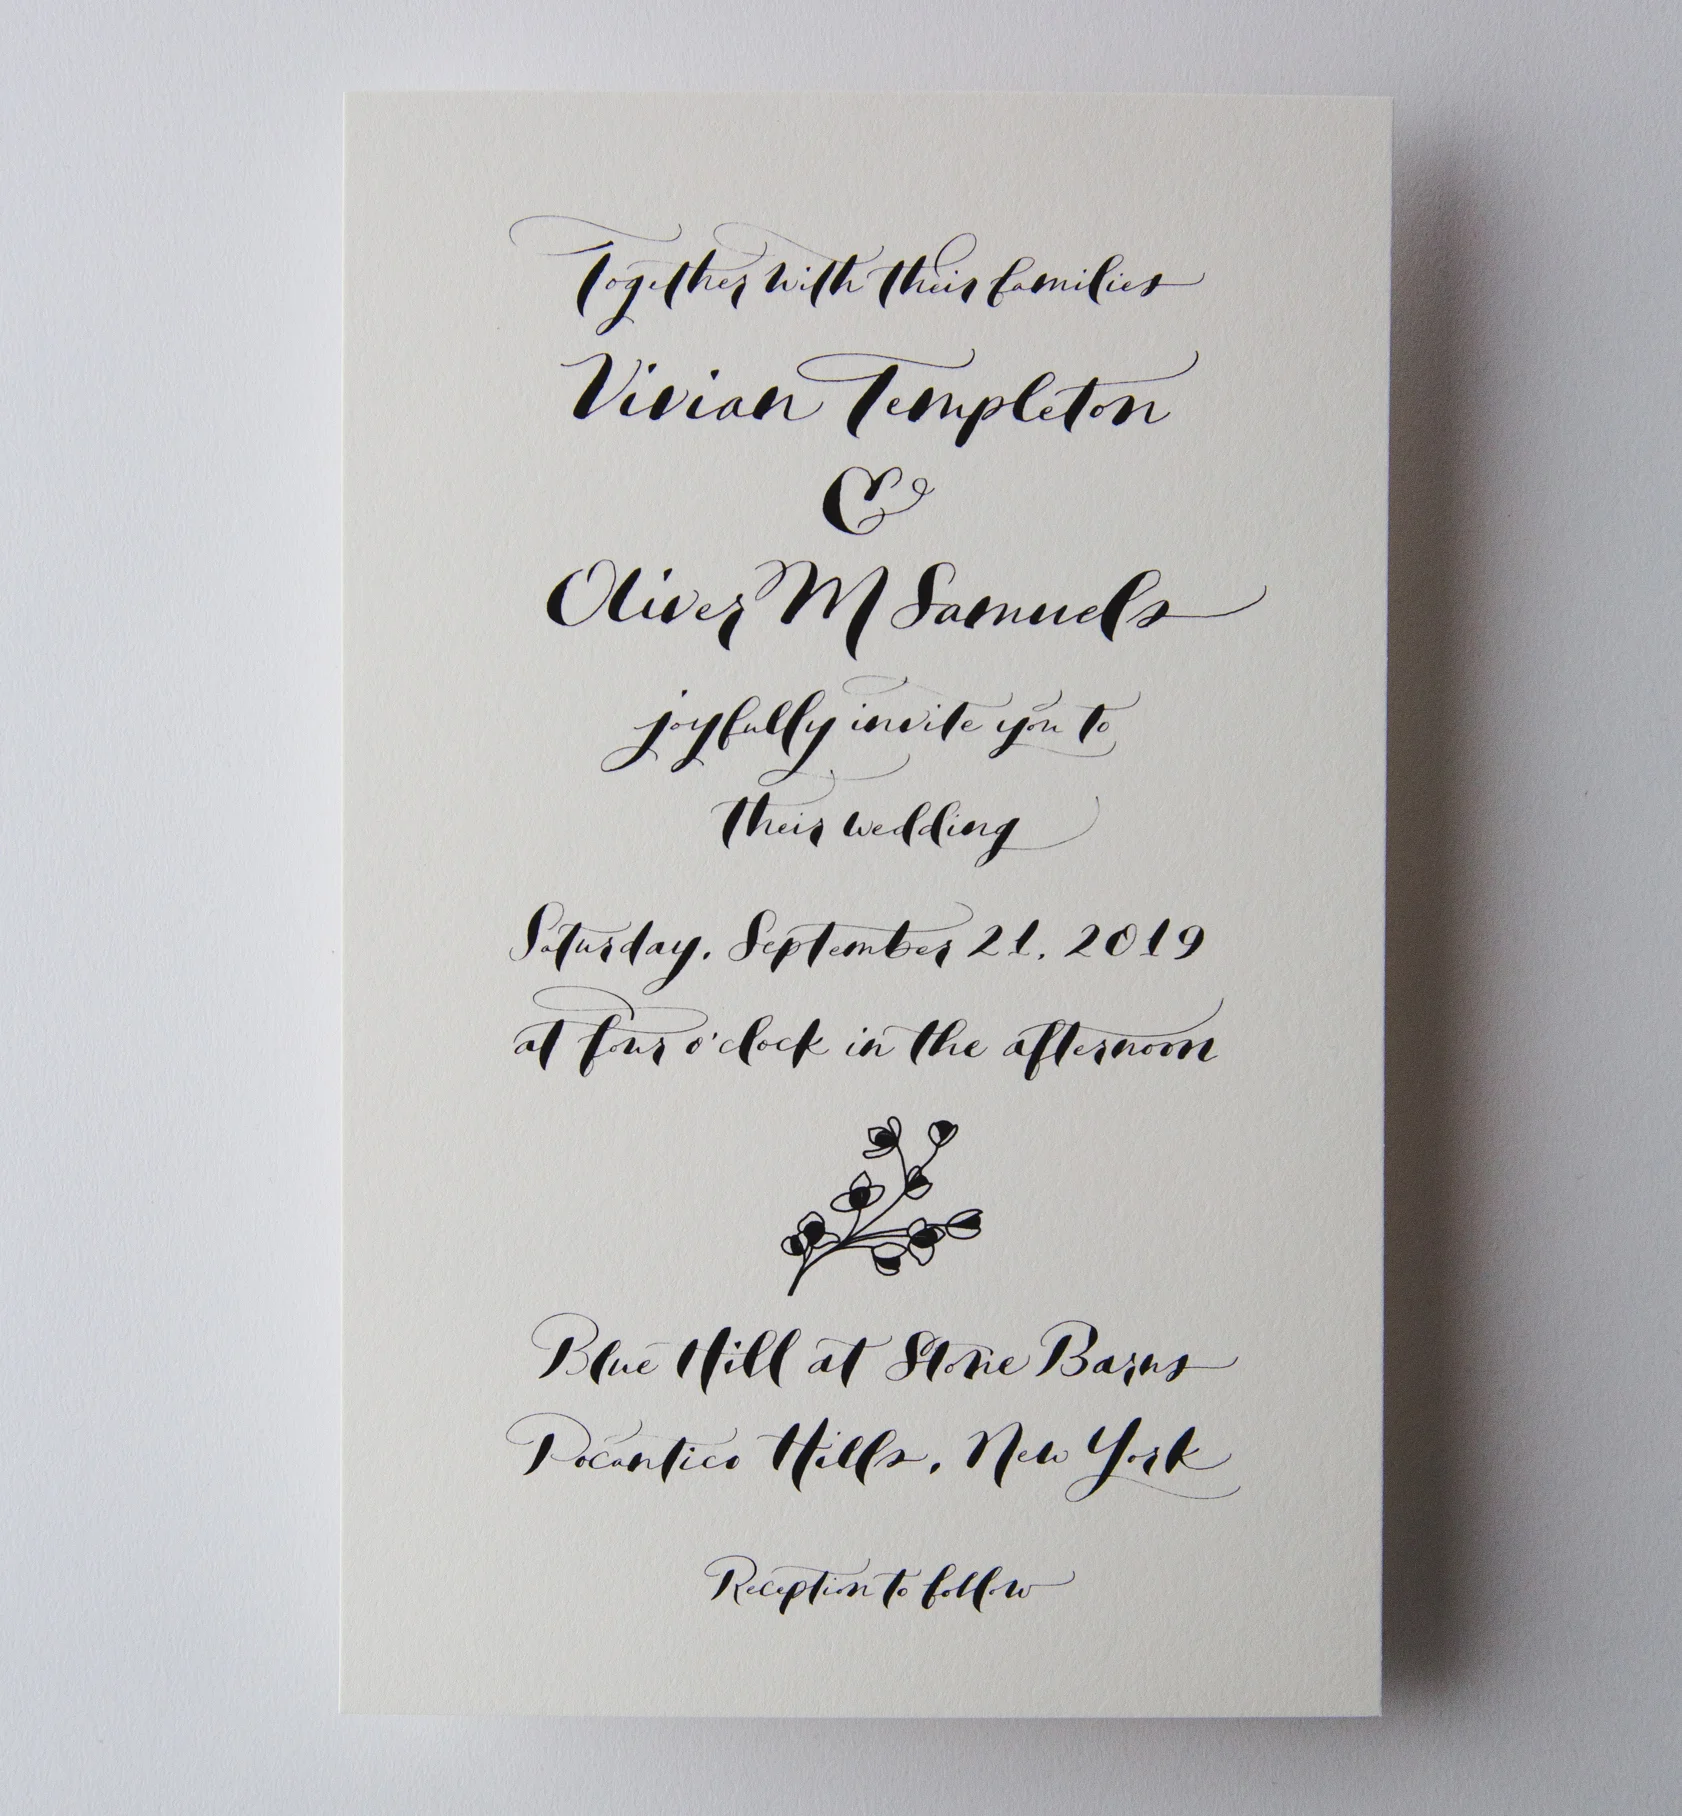 Together with their families
Vivian Templeton
&
Oliver M Samuels
joyfully invite you to
their wedding
Saturday, September 21, 2019
at four o'clock in the afternoon
Blue Hill at Stone Barns
Pocantico Hills, New York
Reception to follow